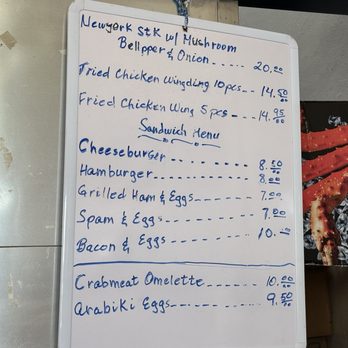 Newyork Stk w/ Mushroom
Bellpper & Onion ..... 20.00
Fried Chicken Wingding 10pcs -- 14.50
Fried Chicken Wing 5pcs -- 14.95
Sandwich Menu
Cheeseburger -------- 8.50
Hamburger -------- 8.00
Grilled Ham & Eggs ---- 7.00
Spam & Eggs -------- 7.00
Bacon & Eggs -------- 10.00
Crabmeat Omelette ------ 10.00
Arabiki Eggs -------- 9.50